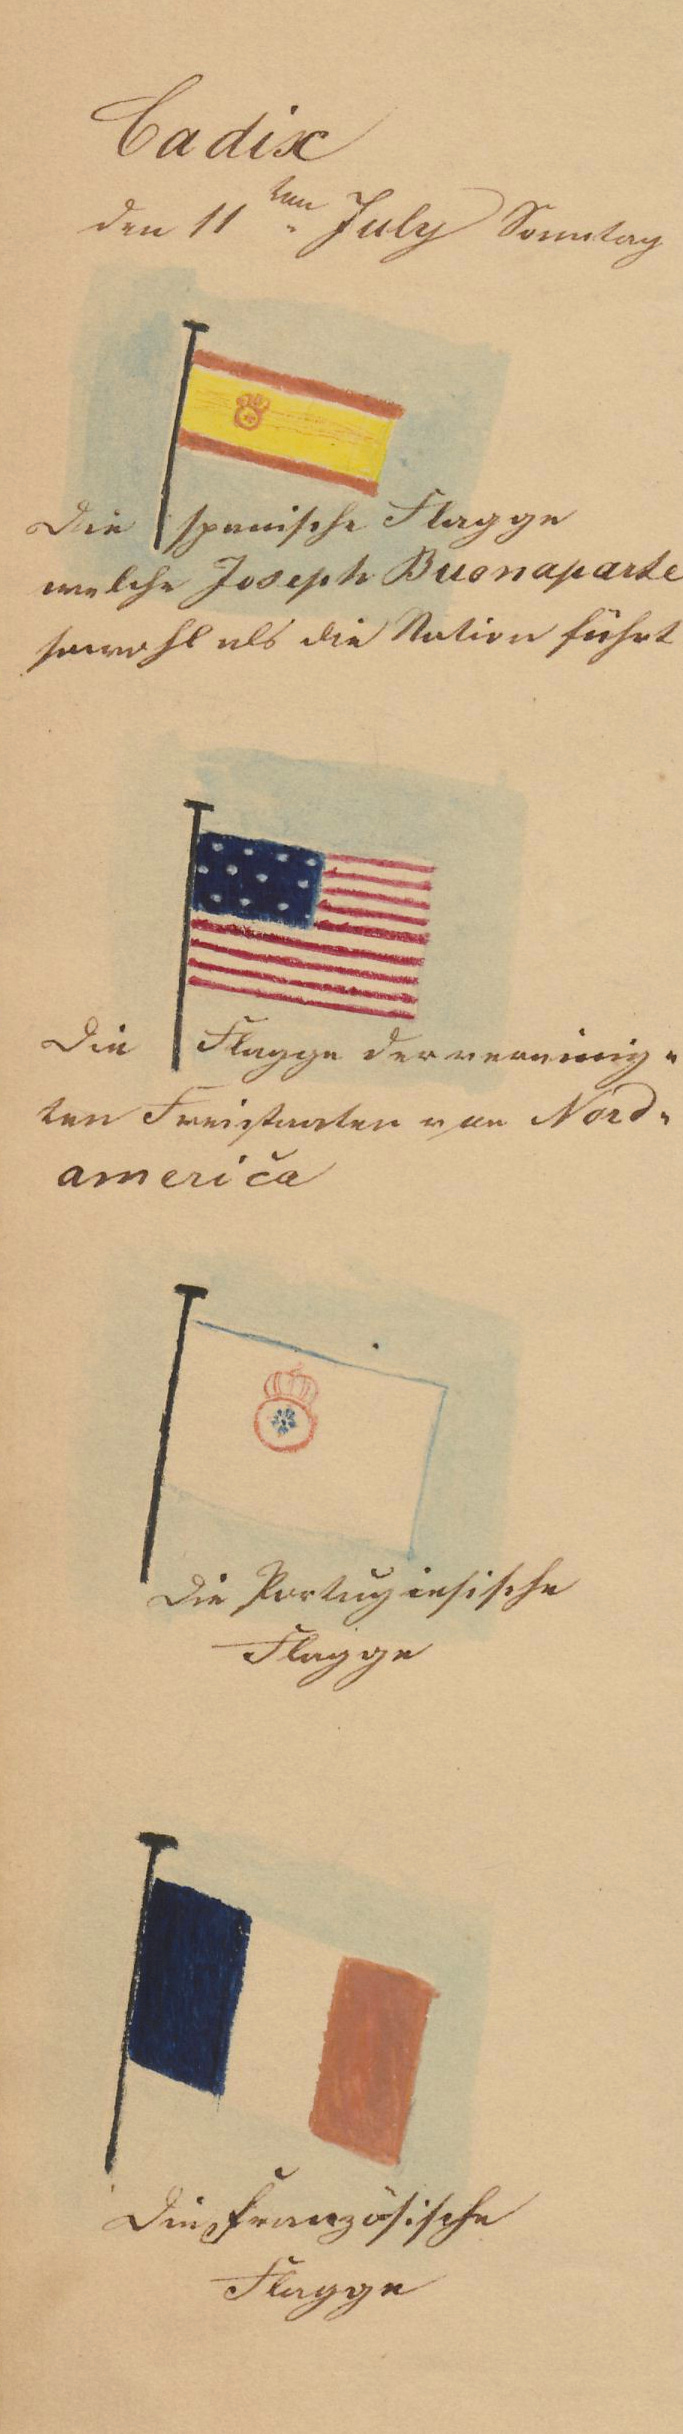 Cadix
den 11ten July Sonntag
Die spanische Flagge
welche Joseph Buonaparte
sowohl als die Nation führt
Die Flagge der vereinig-
ten Freistaaten von Nord-
america
Die Portugiesische
Flagge
Die französische
Flagge